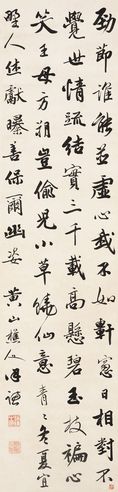 勁節誰能並虛心我不如軒窗日相對不
覺世情疏結實三千載高懸碧玉枝褊心
笑王母方朔豈偷兒小草饒仙意青青冬夏宜
野人獻曝善保爾幽姿 黃山樵人